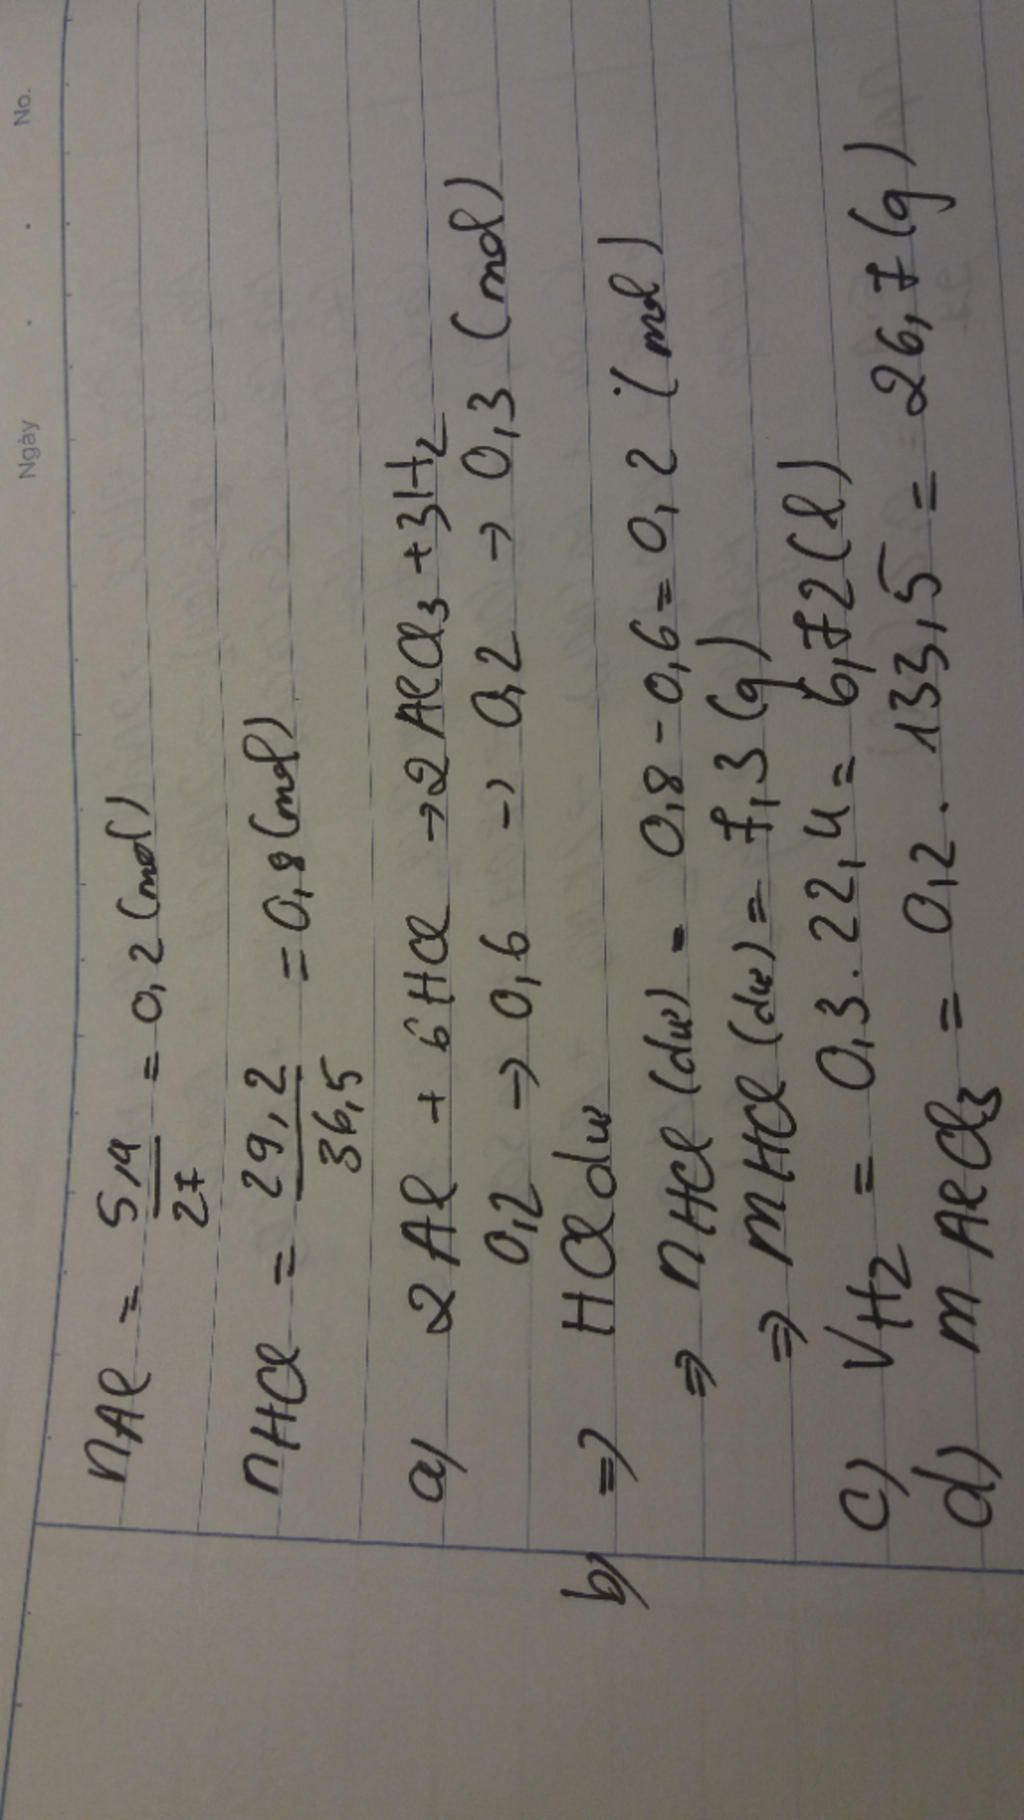 Ngày . . No.
nAl = 5,4/27 = 0,2 (mol)
nHCl = 29,2/36,5 = 0,8 (mol)
a) 2Al + 6HCl → 2AlCl3 + 3H2
0,2 → 0,6 → 0,2 → 0,3 (mol)
b) => HCl dư
=> nHCl (dư) = 0,8 - 0,6 = 0,2 (mol)
=> mHCl (dư) = 7,3 (g)
c) VH2 = 0,3 . 22,4 = 6,72 (l)
d) mAlCl3 = 0,2 . 133,5 = 26,7 (g)